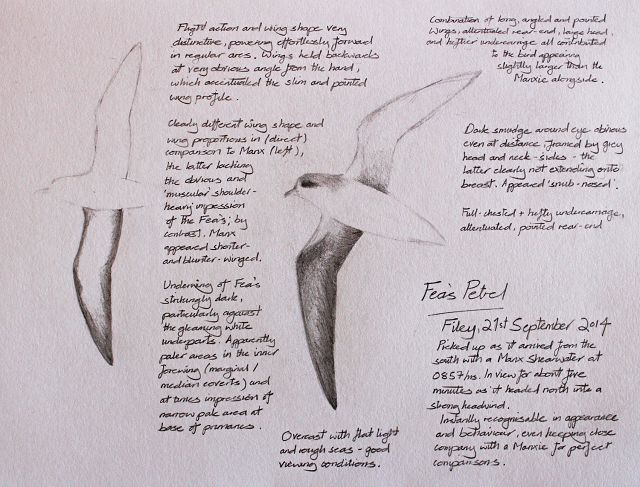 Flight action and wing shape very
distinctive, powering effortlessly forward
in regular arcs. Wings held backwards
at very obvious angle from the hand,
which accentuated the slim and pointed
wing profile.
Clearly different wing shape and
wing proportions in (direct)
comparison to Manx (left),
the latter lacking
the obvious and
'muscular' shoulder-
heavy impression
of the Fea's; by
contrast, Manx
appeared shorter-
and blunter-winged.
Underwing of Fea's
strikingly dark,
particularly against
the gleaming white
underparts. Apparently
paler areas in the inner
forewing (marginal /
median coverts) and
at times impression of
narrow pale area at
base of primaries.
Overcast with flat light
and rough seas - good
viewing conditions.
Combination of long, angled and pointed
wings, attentuated rear-end, large head,
and heftier undercarriage all contributed
to the bird appearing
slightly larger than the
Manxie alongside.
Dark smudge around eye obvious
even at distance, framed by grey
head and neck-sides - the
latter clearly not extending onto
breast. Appeared 'snub-nosed'.
Full-chested + hefty undercarriage,
attentuated, pointed rear-end
Fea's Petrel
Filey, 21st September 2014
Picked up as it arrived from the
south with a Manx Shearwater at
0857hrs. In view for about five
minutes as it headed north into a
strong headwind.
Instantly recognisable in appearance
and behaviour, even keeping close
company with a Manxie for perfect
comparisons.